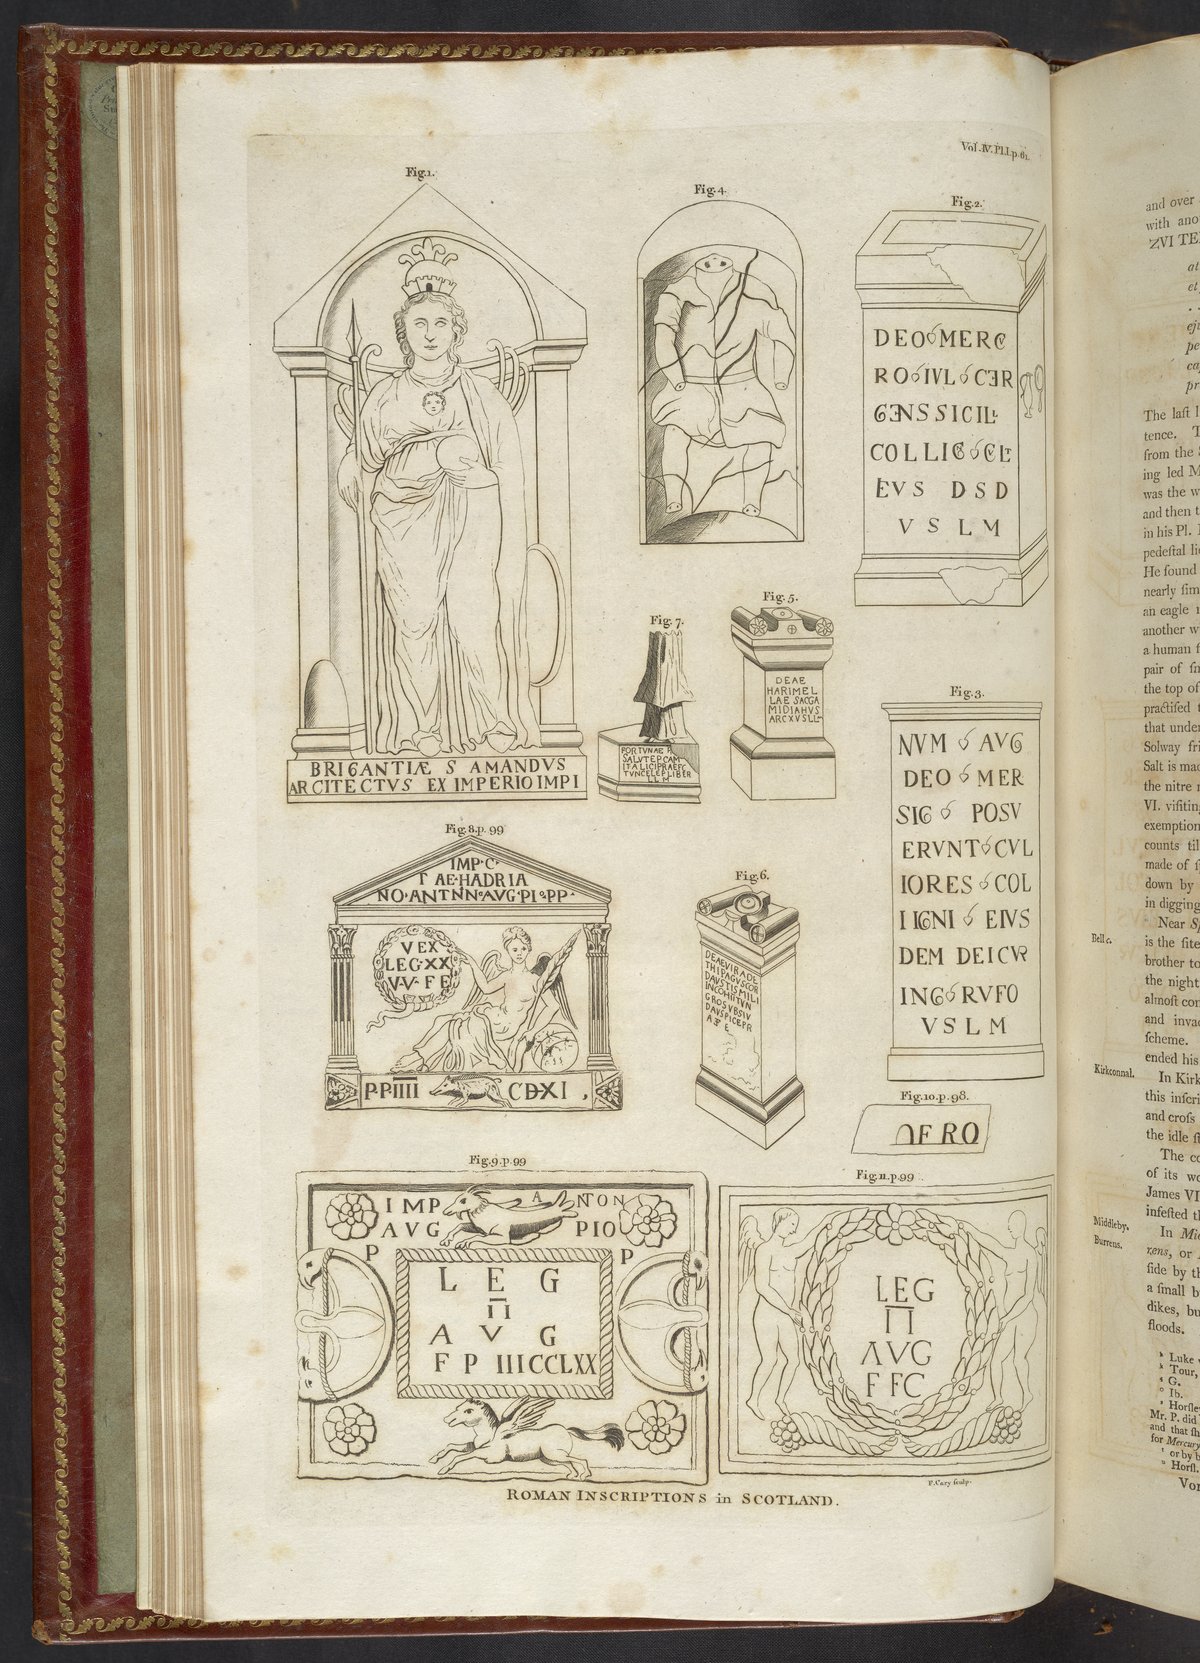 Vol. IV. Pl. I. p. 61.
Fig. 1.
BRIGANTIÆ S AMANDVS
ARCITECTVS EX IMPERIO IMPI
Fig. 4.
Fig. 2.
DEO MERC
RO IVL CER
GENS SICIL
COLLIG CVLT
EVS DSD
V S L M
Fig. 5.
DEAE
HARIMEL
LAE SACGA
MIDIAHVS
ARCXVSLLM
Fig. 7.
FORTVNAE P
SALVTE P CAM
ITALICI PRAEFC
TVNCELEP LIBER
LLM
Fig. 3.
NVM AVG
DEO MER
SIG POSV
ERVNT CVL
IORES COL
IIGNI EIVS
DEM DEI CVR
ING RVFO
VSLM
Fig. 8. p. 99
IMP·C·
T AE·HADRIA
NO·ANTNN·AVG·PI·PP·
VEX
LEG·XX
V·V·FE
P·P·IIII CDXI ,
Fig. 6.
DEAE VIRADE
THI PAGVS CON
DRVSTIS MILI
Fig. 10. p. 98.
OFRO
Fig. 9. p. 99
IMP ANTON
AVG PIO
P P
L E G
II
A V G
F P IIIICCLXX
Fig. 11. p. 99
LEG
II
AVG
F FC
F. Cary sculp.
ROMAN INSCRIPTIONS in SCOTLAND.
and over
with ano
ZVI TE
at
et
eju
pe
ca
pr
The laſt l
tence. T
from the
ing led M
was the w
and then t
in his Pl. I
pedeſtal li
He found
nearly ſim
an eagle
another w
a human f
pair of ſm
the top of
practiſed t
that under
Solway fri
Salt is mad
the nitre
VI. viſiting
exemption
counts til
made of ſ
down by
in digging
Near Sp
Bell c.
is the ſite
brother to
the night
almoſt con
and invad
ſcheme.
ended his
Kirkconnal.
In Kirk
this inſcri
and croſs
the idle ſt
The co
of its wo
James VI
infeſted th
Middleby.
In Mid
Burrens.
rens, or
ſide by th
a ſmall b
dikes, bu
floods.
Luke
Tour,
G.
Ib.
Horſle
Mr. P. did
and that ſh
for Mercury
or by b
Horſl.
Vo